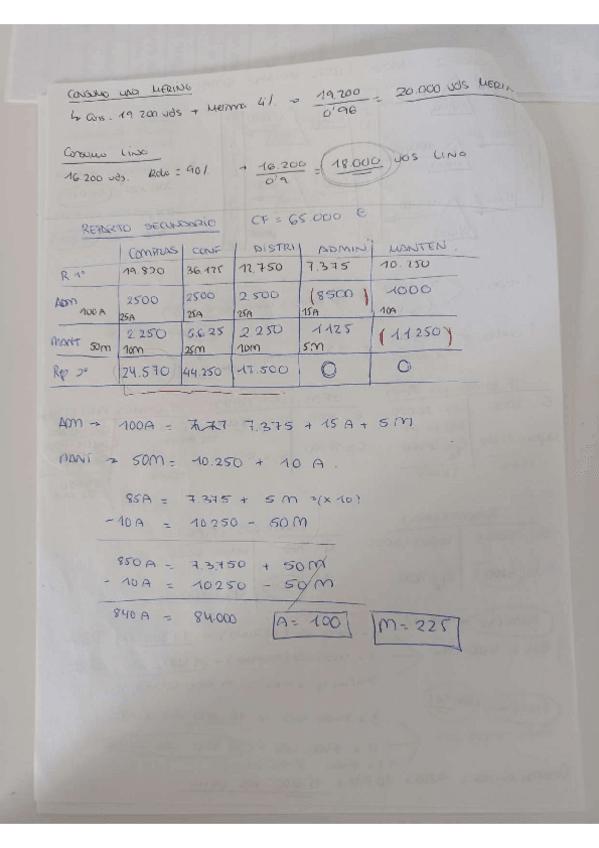 CONSUMO UDS MERINO
↳ Cons. 19 200 uds + Merma 4% → 19 200 / 0'96 = 20.000 UDS MERIN
Consumo LINO
16 200 uds. Rdto = 90% → 16.200 / 0'9 = 18.000 UDS LINO
REPARTO SECUNDARIO CF = 65.000 €
COMPRAS CONF DISTRI ADMIN MANTEN.
R 1º 19.820 36.125 12.750 7.375 10.250
ADM 2500 2500 2.500 (8500) 1000
100A 25A 25A 25A 15A 10A
MANT 2.250 5.625 2 250 1125 (11250)
50m 10m 25m 10m 5m
Rp 2º 24.570 44.250 17.500 0 0
ADM → 100A = 7.375 + 15 A + 5 M
MANT → 50M = 10.250 + 10 A.
85A = 7.375 + 5 M (x 10)
- 10A = 10250 - 50M
850A = 73.750 + 50M
- 10A = 10250 - 50M
840A = 84.000 A = 100 M = 225